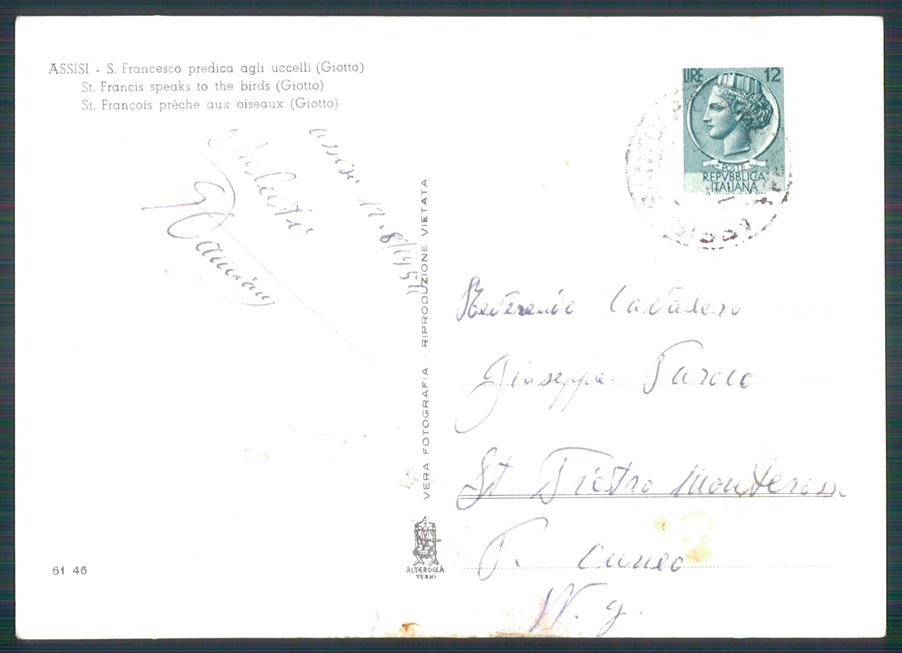 ASSISI - S. Francesco predica agli uccelli (Giotto)
St. Francis speaks to the birds (Giotto)
St. François prêche aux oiseaux (Giotto)
LIRE 12
POSTE
REPVBBLICA
ITALIANA
Assisi 12.8/195
VERA FOTOGRAFIA - RIPRODUZIONE VIETATA
Giuseppe Paroco
St Pietro Monterosso
P. Cuneo
ALTEROCCA
TERNI
61 46